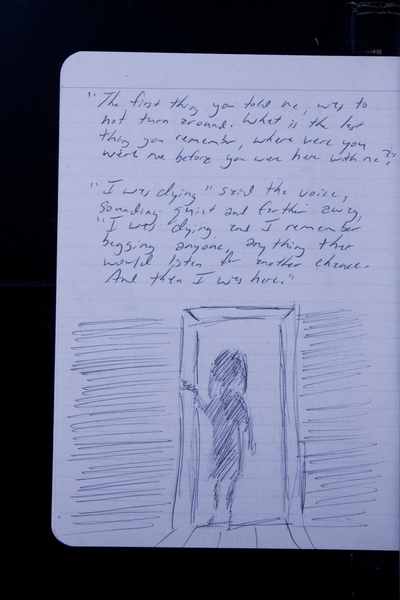 "The first thing you told me, was to
not turn around. What is the last
thing you remember, where were you
were me before you were here with me?"
"I was dying" said the voice,
sounding quiet and further away,
"I was dying, and I remember
begging anyone, anything that
would listen for another chance.
And then I was here."